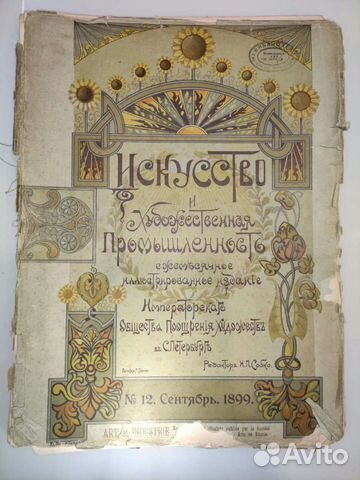 Искусство
и
Художественная
Промышленность
ежемесячное
иллюстрированное изданіе
Императорскаго
Общества Поощренія Художествъ
въ С.Петербургѣ
Редакторъ Н.П. Собко.
№ 12. Сентябрь. 1899.
ART et INDUSTRIE
publiée par la Société
Avito